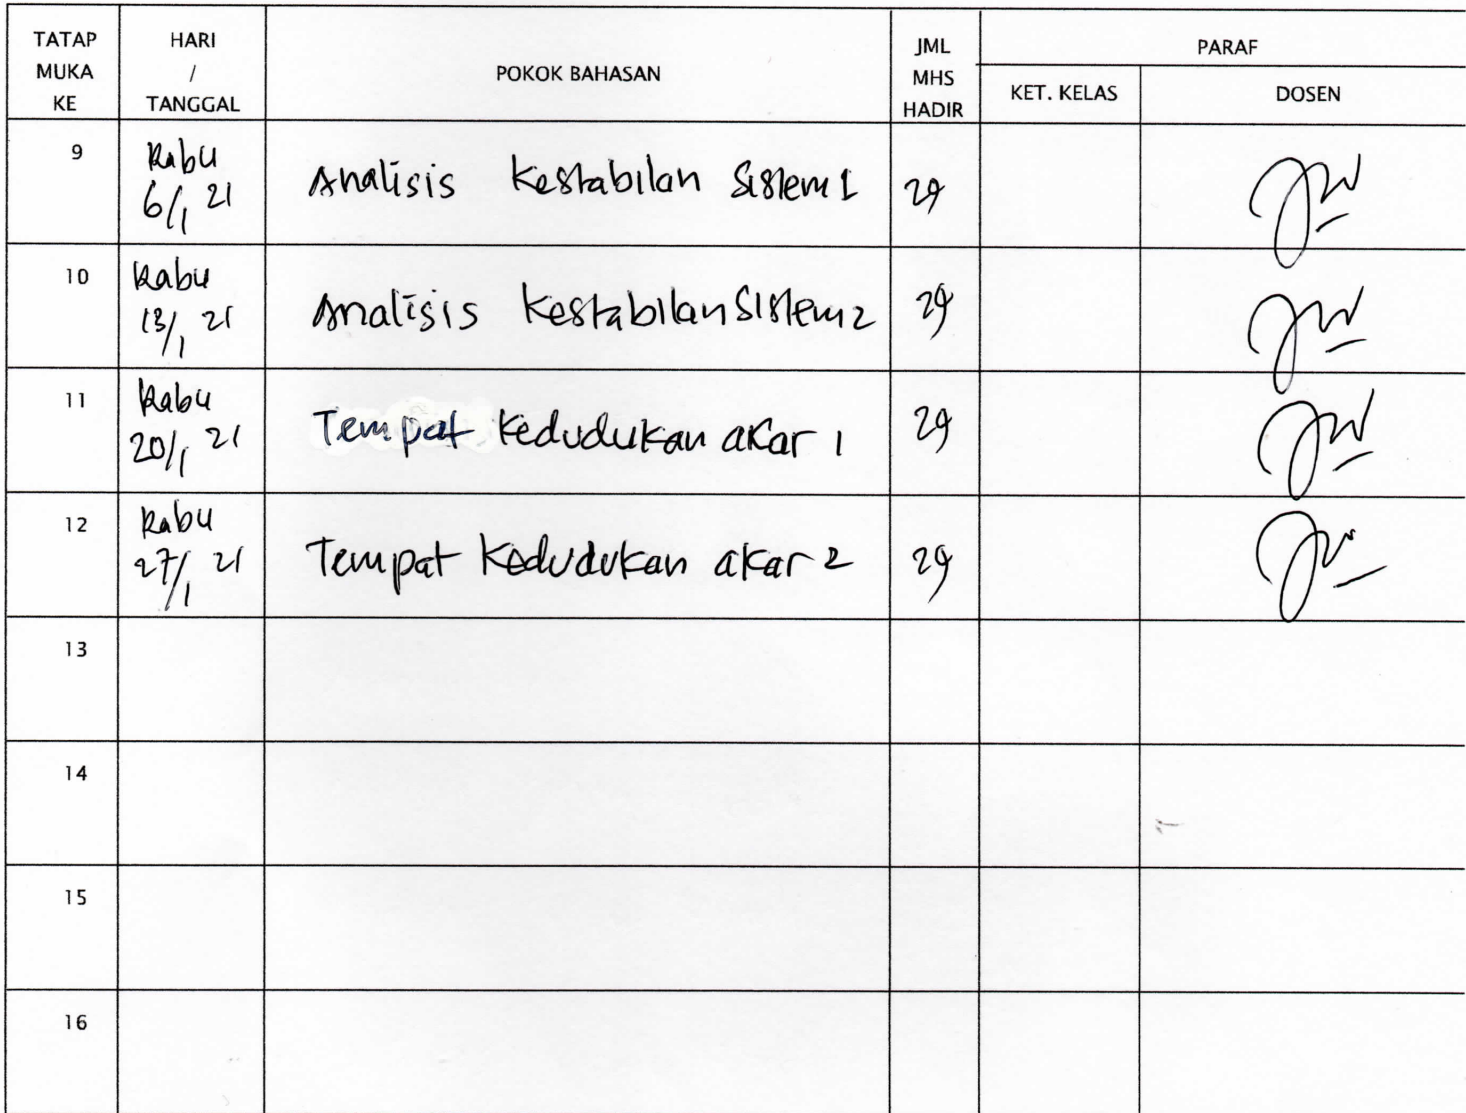 TATAP MUKA KE
HARI / TANGGAL
POKOK BAHASAN
JML MHS HADIR
PARAF
KET. KELAS
DOSEN
9
Rabu
6/1 21
Analisis Kestabilan Sistem 1
29
10
Rabu
13/1 21
Analisis Kestabilan Sistem 2
29
11
Rabu
20/1 21
Tempat Kedudukan akar 1
29
12
Rabu
27/1 21
Tempat Kedudukan akar 2
29
13
14
15
16